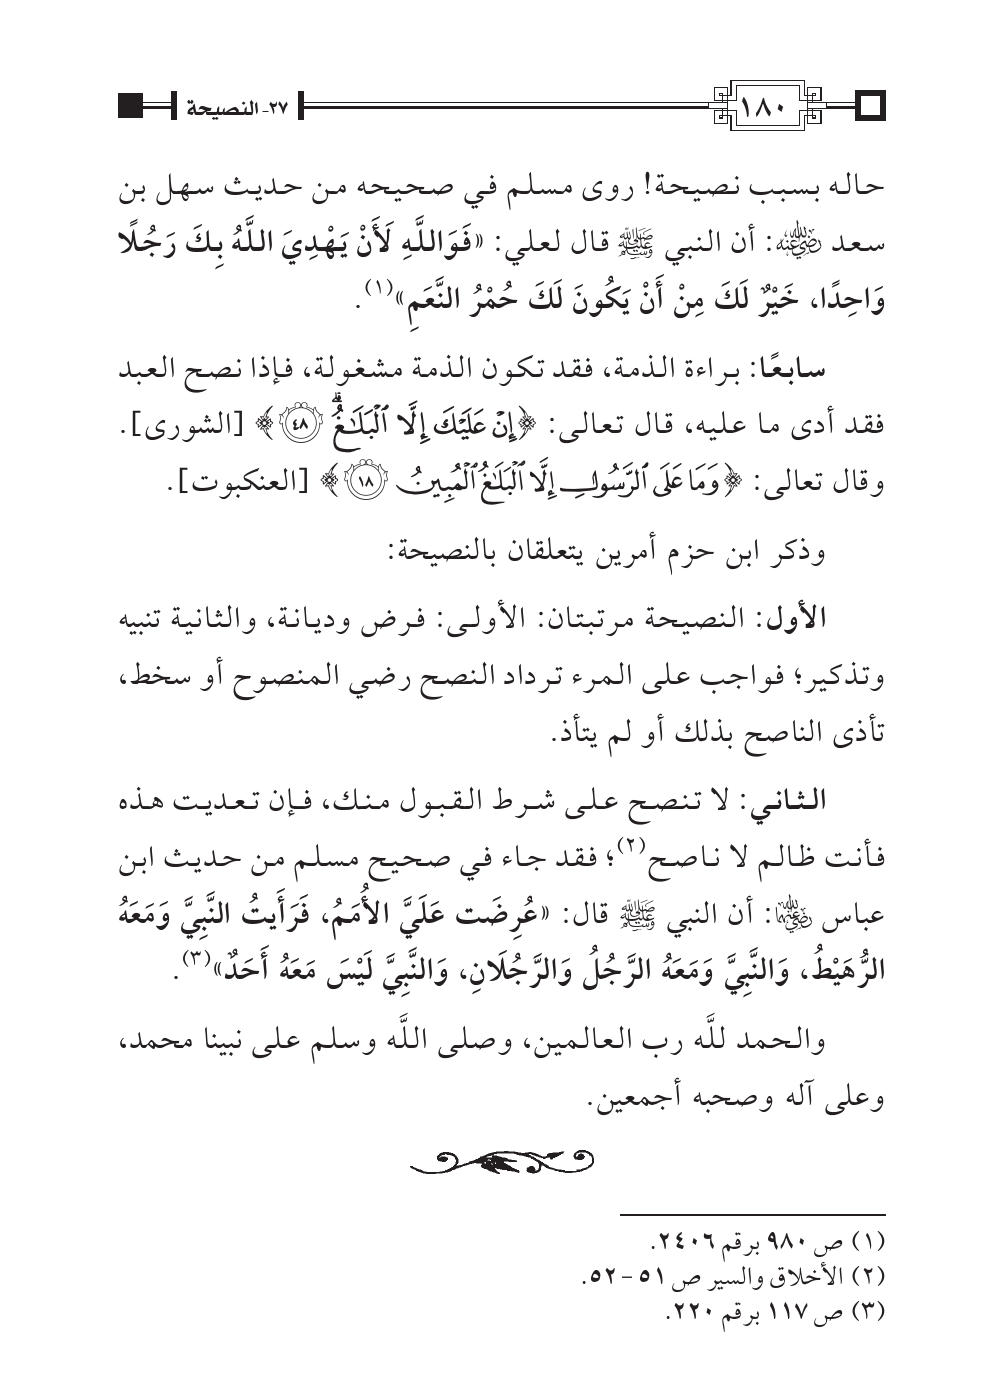 ١٨٠
٢٧- النصيحة
حاله بسبب نصيحة! روى مسلم في صحيحه من حديث سهل بن
سعد رضي الله عنه: أن النبي ﷺ قال لعلي: «فَوَاللَّهِ لَأَنْ يَهْدِيَ اللَّهُ بِكَ رَجُلًا
وَاحِدًا، خَيْرٌ لَكَ مِنْ أَنْ يَكُونَ لَكَ حُمْرُ النَّعَمِ»(١).
سابعًا: براءة الذمة، فقد تكون الذمة مشغولة، فإذا نصح العبد
فقد أدى ما عليه، قال تعالى: ﴿إِنْ عَلَيْكَ إِلَّا ٱلْبَلَٰغُ ۗ ٤٨﴾ [الشورى].
وقال تعالى: ﴿وَمَا عَلَى ٱلرَّسُولِ إِلَّا ٱلْبَلَٰغُ ٱلْمُبِينُ ١٨﴾ [العنكبوت].
وذكر ابن حزم أمرين يتعلقان بالنصيحة:
الأول: النصيحة مرتبتان: الأولى: فرض وديانة، والثانية تنبيه
وتذكير؛ فواجب على المرء ترداد النصح رضي المنصوح أو سخط،
تأذى الناصح بذلك أو لم يتأذ.
الثاني: لا تنصح على شرط القبول منك، فإن تعديت هذه
فأنت ظالم لا ناصح(٢)؛ فقد جاء في صحيح مسلم من حديث ابن
عباس رضي الله عنهما: أن النبي ﷺ قال: «عُرِضَت عَلَيَّ الأُمَمُ، فَرَأَيتُ النَّبِيَّ وَمَعَهُ
الرُّهَيْطُ، وَالنَّبِيَّ وَمَعَهُ الرَّجُلُ وَالرَّجُلَانِ، وَالنَّبِيَّ لَيْسَ مَعَهُ أَحَدٌ»(٣).
والحمد للَّه رب العالمين، وصلى اللَّه وسلم على نبينا محمد،
وعلى آله وصحبه أجمعين.
(١) ص ٩٨٠ برقم ٢٤٠٦.
(٢) الأخلاق والسير ص ٥١ - ٥٢.
(٣) ص ١١٧ برقم ٢٢٠.